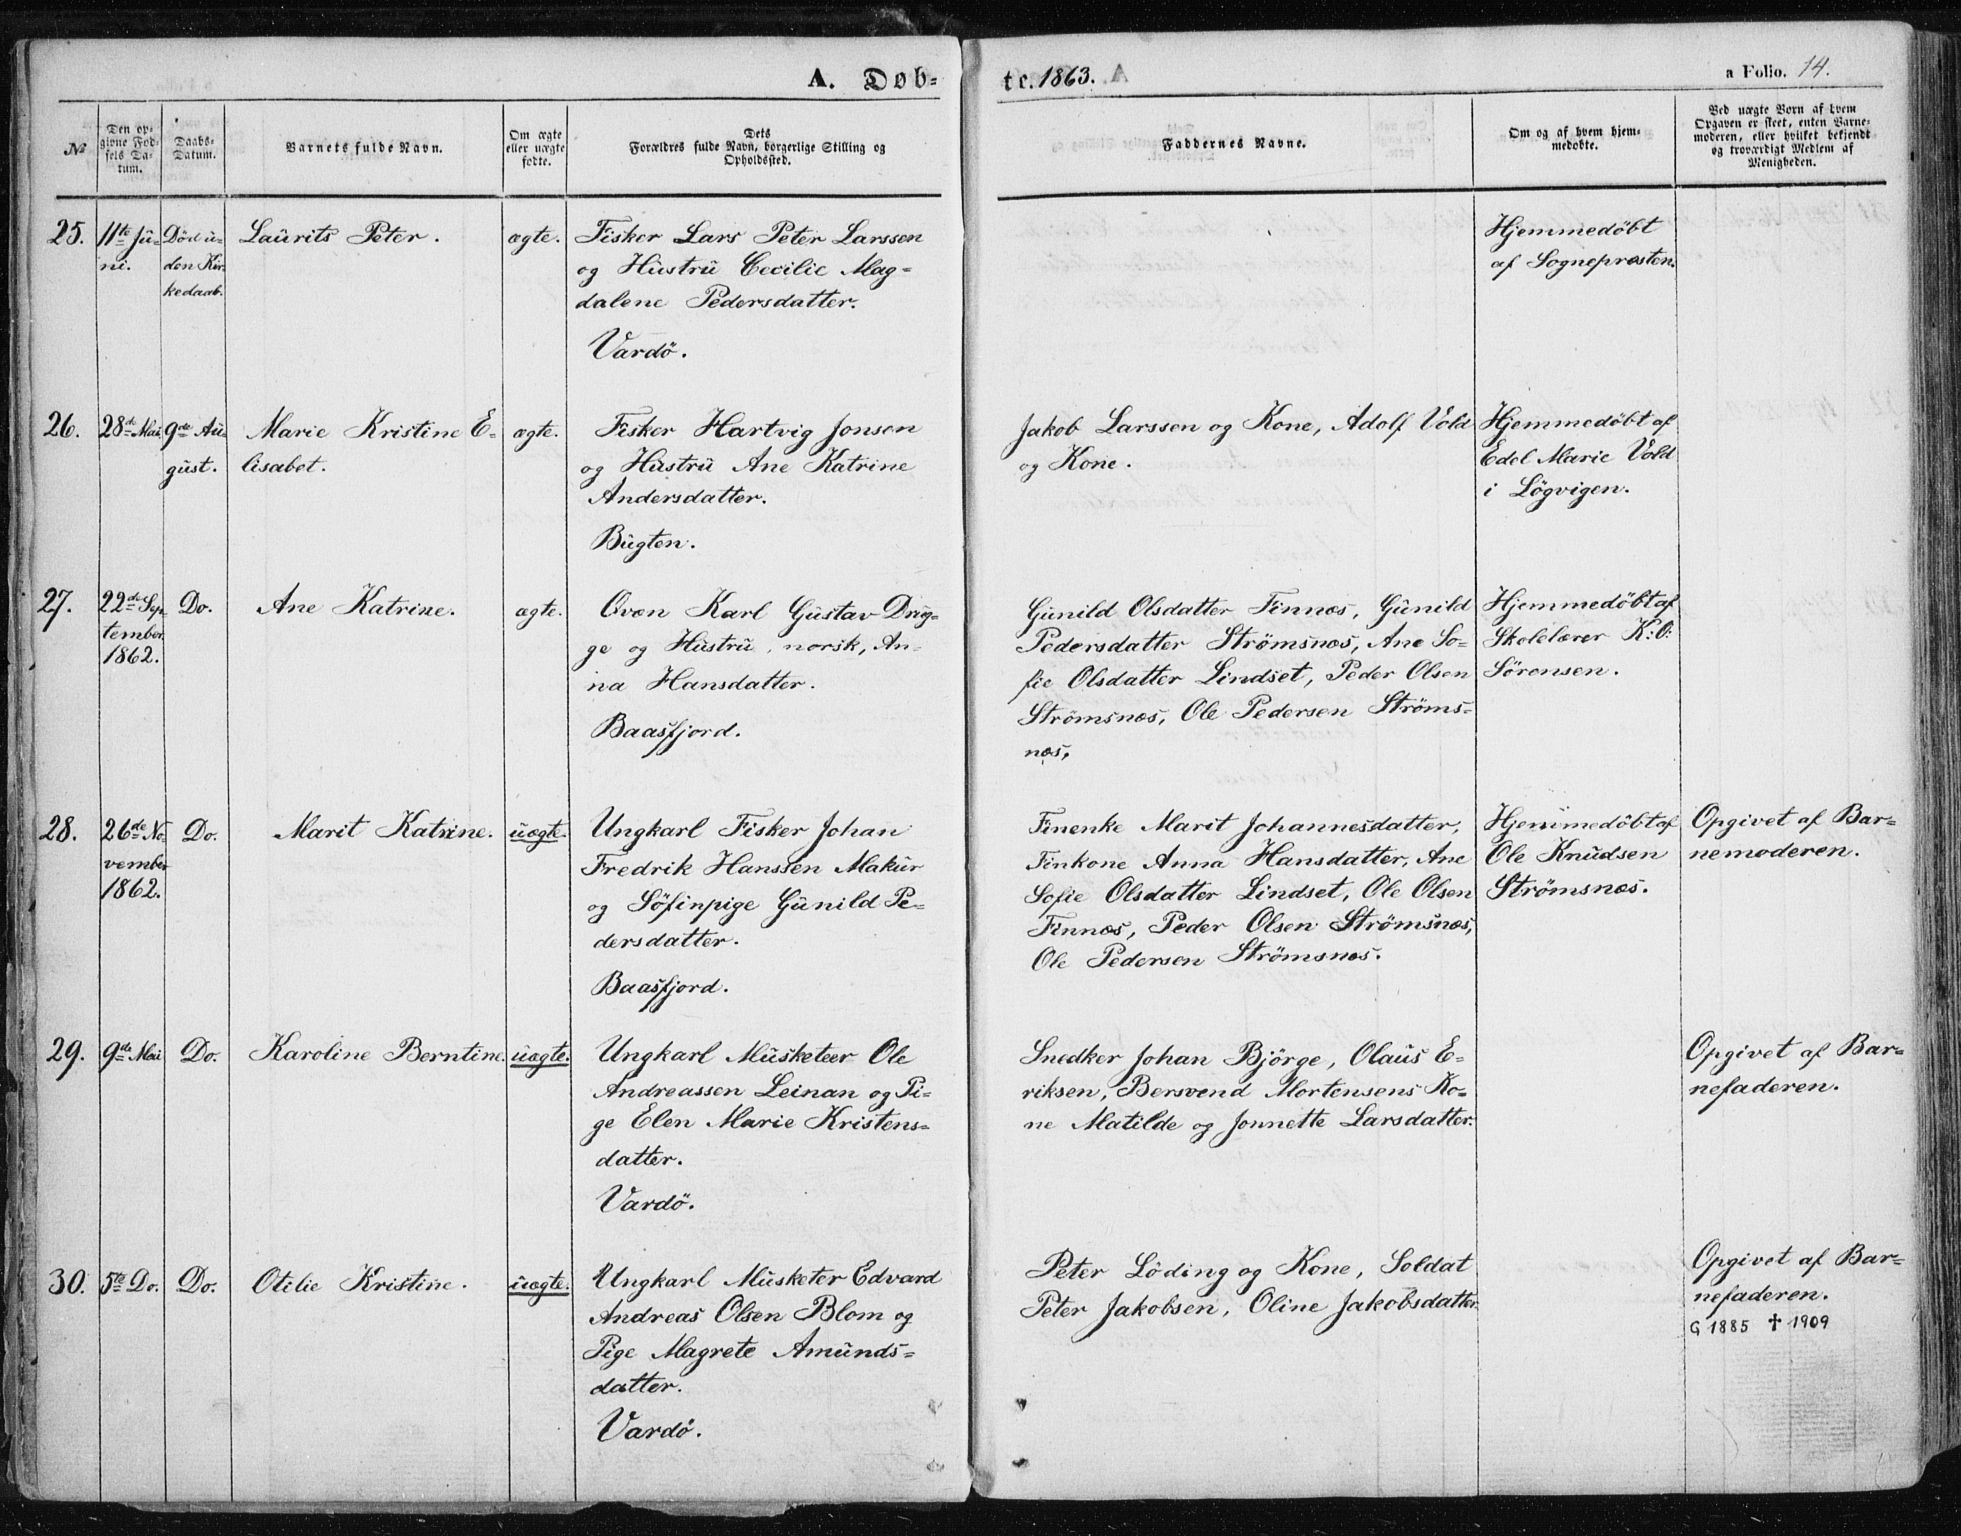 A. Døb-
te. 1863.
a Folio. 14.
№
Den op-
givne Fød-
sels Da-
tum.
Daabs-
Datum.
Barnets fulde Navn.
Om ægte
eller uægte
fødte.
Dets
Forældres fulde Navn, borgerlige Stilling og
Opholdssted.
Faddernes Navne.
Om og af hvem hjem-
medøbte.
Ved uægte Børn af hvem
Opgaven er skeet, enten Barne-
moderen, eller hvilket bekjendt
og troværdigt Medlem af
Menigheden.
25.
11te Jü-
ni.
Död ü-
den Kir-
kedaab.
Laürits Peter.
ægte.
Fisker Lars Peter Larssen
og Hüstrü Cecilie Mag-
dalene Pedersdatter.
Vardö.
Hjemmedöbt
af Sognepræsten.
26.
28de Mai.
9de Aü-
güst.
Marie Kristine E-
lisabet.
ægte.
Fisker Hartvig Jonsen
og Hüstrü Ane Katrine
Andersdatter.
Bügten.
Jakob Larssen og Kone, Adolf Vold
og Kone.
Hjemmedöbt af
Edel Marie Vold
i Lögvigen.
27.
22de Sep-
tember
1862.
Do.
Ane Katrine.
ægte.
Qvæn Karl Güstav Drüg-
ge og Hüstrü, norsk, An-
na Hansdatter.
Baasfjord.
Günild Olsdatter Finnæs, Günild
Pedersdatter Strömsnæs, Ane So-
fie Olsdatter Lindset, Peder Olsen
Strömsnæs, Ole Pedersen Ströms-
næs,
Hjemmedöbt af
Skolelærer K:O:
Sörensen.
28.
26de No-
vember
1862.
Do.
Marit Katrine.
üægte.
Ungkarl Fisker Johan
Fredrik Hanssen Makür
og Söfinpige Günild Pe-
dersdatter.
Baasfjord.
Finenke Marit Johannesdatter,
Finkone Anna Hansdatter, Ane
Sofie Olsdatter Lindset, Ole Olsen
Finnæs, Peder Olsen Strömsnæs,
Ole Pedersen Strömsnæs.
Hjemmedöbt af
Ole Knüdsen
Strömsnæs.
Opgivet af Bar-
nemoderen.
29.
9de Mai
Do.
Karoline Berntine.
üægte.
Ungkarl Müsketeer Ole
Andreassen Leinan og Pi-
ge Elen Marie Kristens-
datter.
Vardö.
Snedker Johan Björge, Olaüs E-
riksen, Bersvend Mortensens Ko-
ne Matilde og Jonnette Larsdatter.
Opgivet af Bar-
nefaderen.
30.
5te Do.
Do.
Otilie Kristine.
üægte.
Ungkarl Müsketer Edvard
Andreas Olsen Blom og
Pige Magrete Amünds-
datter.
Vardö.
Peter Löding og Kone, Soldat
Peter Jakobsen, Oline Jakobsdatter.
Opgivet af Bar-
nefaderen.
G 1885 ✝ 1909